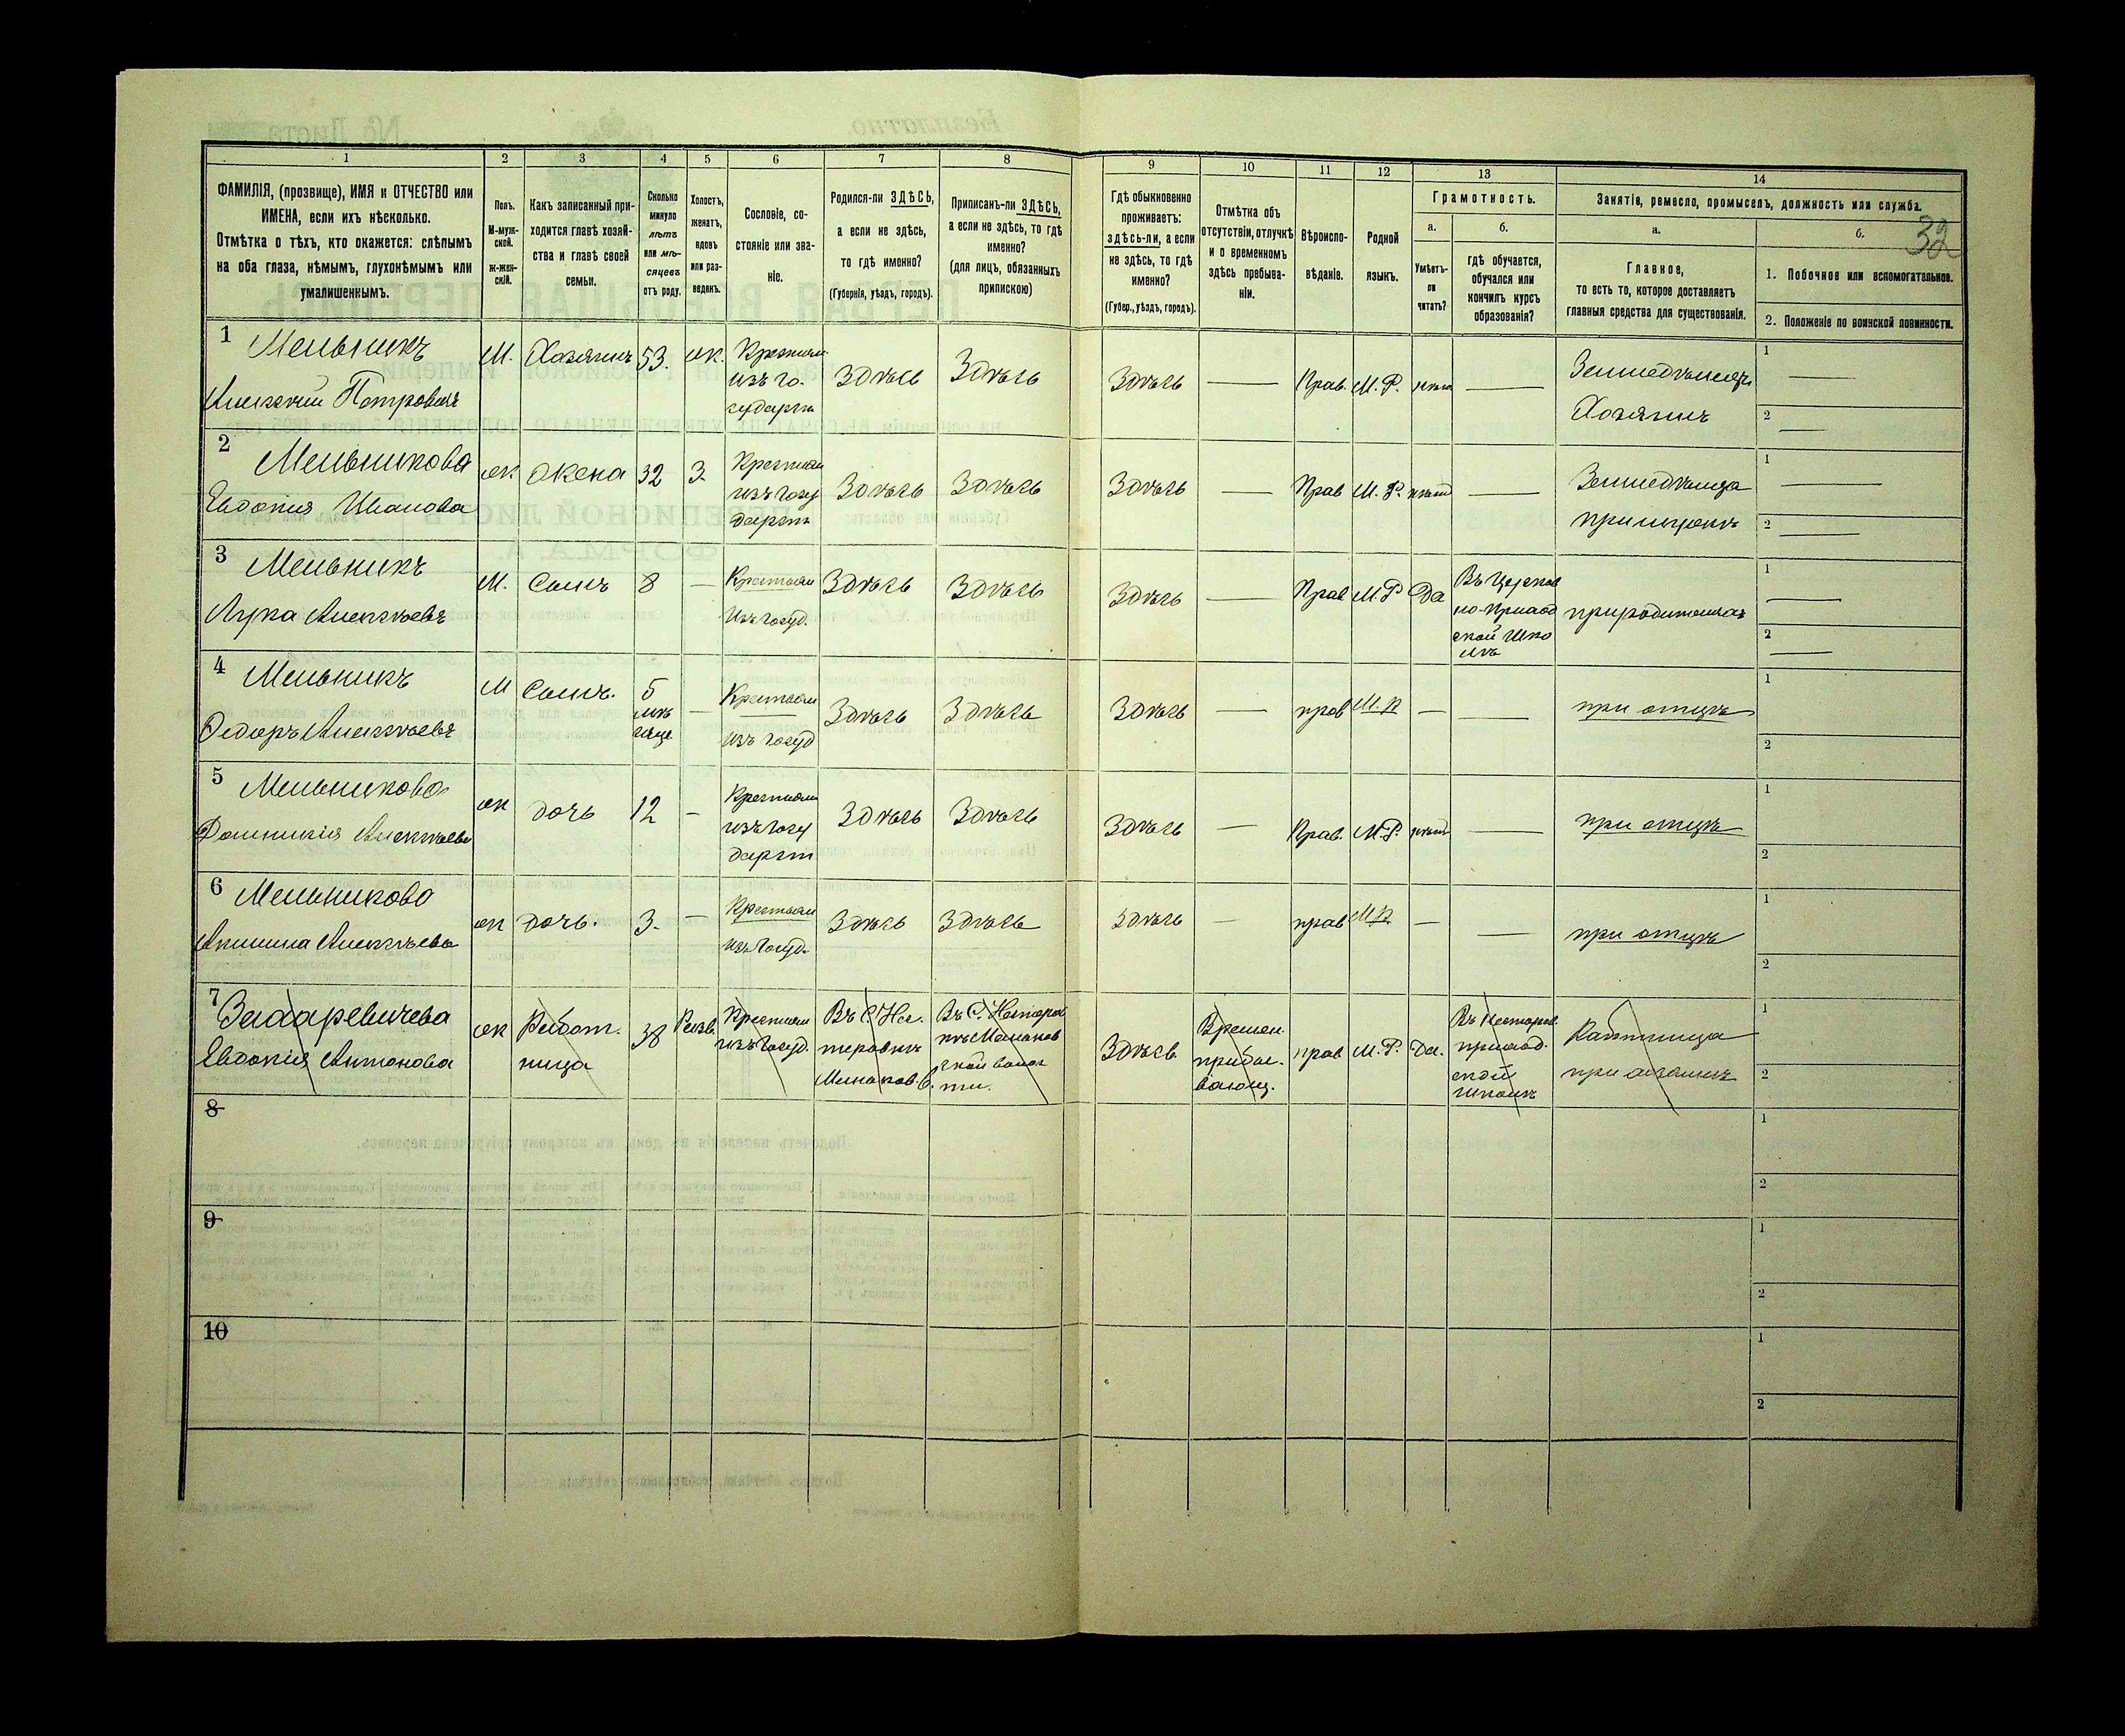 1 2 3 4 5 6 7 8 9 10 11 12 13 14
ФАМИЛІЯ, (прозвище), ИМЯ и ОТЧЕСТВО или
ИМЕНА, если ихъ нѣсколько.
Отмѣтка о тѣхъ, кто окажется: слѣпымъ
на оба глаза, нѣмымъ, глухонѣмымъ или
умалишеннымъ.
Полъ.
М-муж-
ской.
ж-жен-
скій.
Какъ записанный при-
ходится главѣ хозяй-
ства и главѣ своей
семьи.
Сколько
минуло
лѣтъ
или мѣ-
сяцевъ
отъ роду.
Холостъ,
женатъ,
вдовъ
или раз-
веденъ.
Сословіе, со-
стояніе или зва-
ніе.
Родился-ли ЗДѢСЬ,
а если не здѣсь,
то гдѣ именно?
(Губернія, уѣздъ, городъ).
Приписанъ-ли ЗДѢСЬ,
а если не здѣсь, то гдѣ
именно?
(для лицъ, обязанныхъ
припискою)
Гдѣ обыкновенно
проживаетъ:
здѣсь-ли, а если
не здѣсь, то гдѣ
именно?
(Губер., уѣздъ, городъ).
Отмѣтка объ
отсутствіи, отлучкѣ
и о временномъ
здѣсь пребыва-
ніи.
Вѣроиспо-
вѣданіе.
Родной
языкъ.
Грамотность.
а.
Умѣетъ-
ли
читать?
б.
гдѣ обучается,
обучался или
кончилъ курсъ
образованія?
Занятіе, ремесло, промыселъ, должность или служба.
32
а.
Главное,
то есть то, которое доставляетъ
главныя средства для существованія.
б.
1. Побочное или вспомогательное.
2. Положеніе по воинской повинности.
1 Мельникъ
Алексѣй Петровичъ
М. Хозяинъ 53. ж.
Крестьян
изъ го-
сударст
Здѣсь Здѣсь Здѣсь — Прав. М.Р. —
Земледѣлецъ
Хозяинъ
1 —
2 —
2 Мельникова
Евдокія Иванова
ж. Жена 32 З.
Крестьян
изъ госу
дарст
Здѣсь Здѣсь Здѣсь — Прав М.Р. нѣтъ —
1 —
2 —
3 Мельникъ
Лука Алексѣевъ
М. Сынъ 8 —
Крестьян
изъ госуд.
Здѣсь Здѣсь Здѣсь — Прав М.Р Да
Въ Церков
но-приход
ской шко
лѣ
при родителяхъ
1 —
2 —
4 Мельникъ
Ѳедоръ Алексѣевъ
М Сынъ. 5
мѣ
сяце
—
Крестьян
изъ госуд
Здѣсь Здѣсь Здѣсь — прав М.Р — —
при отцѣ
1
2
5 Мельникова
Домникія Алексѣева
ж дочь 12 —
Крестьян
изъ госу
дарст
Здѣсь Здѣсь Здѣсь — Прав. М.Р. нѣтъ —
при отцѣ
1
2
6 Мельникова
Акилина Алексѣева
ж дочь. 3. —
Крестьян
изъ госуд.
Здѣсь Здѣсь Здѣсь — прав М.Р. — —
при отцѣ
1
2
7 Захаревичева
Евдокія Антонова
ж
Работ-
ница
38
Крестьян
изъ госуд.
Въ С. Нес-
теровкѣ
Въ С. Нестеров
Здѣсь
Времен.
прибы-
вающ.
прав М.Р. Да.
Въ Нестеров.
приход.
ской
школѣ
Работница
при хозяинѣ
1
2
8
1
2
9
1
2
10
1
2